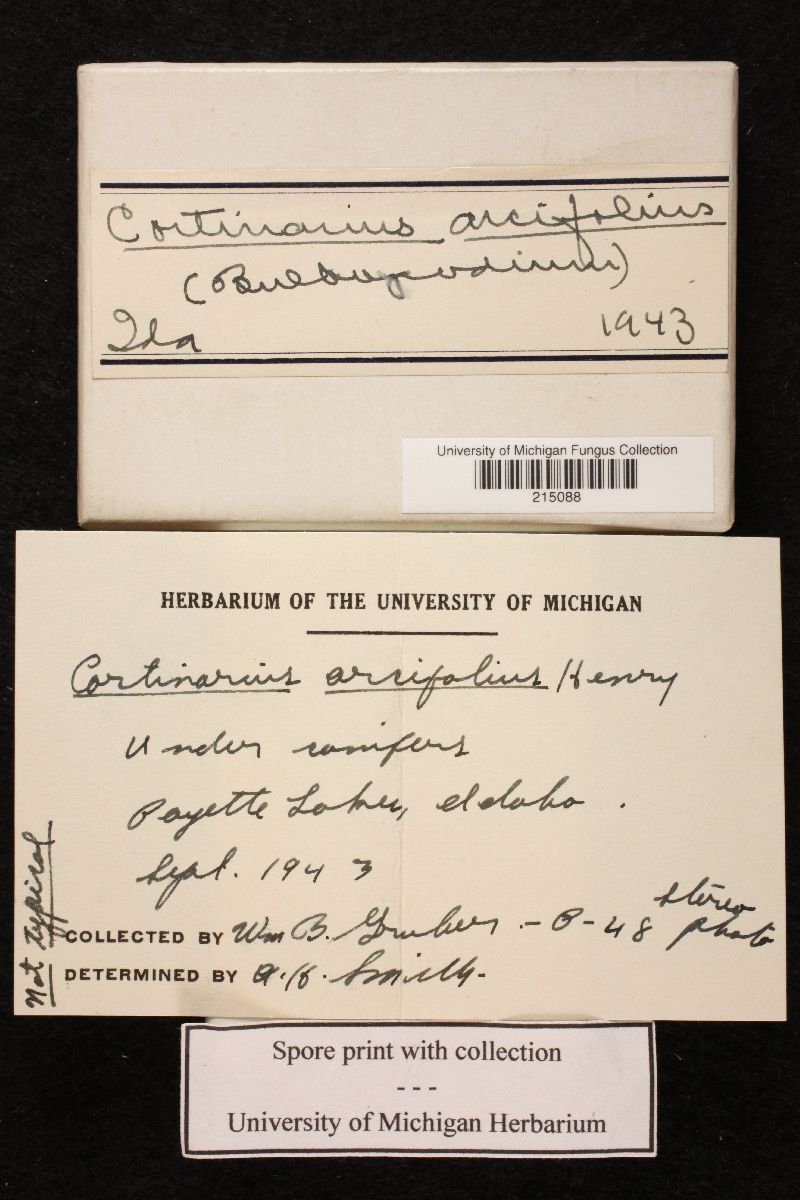 Cortinarius arcifolius
(Bulbopodium)
Ida 1943
University of Michigan Fungus Collection
215088
HERBARIUM OF THE UNIVERSITY OF MICHIGAN
Cortinarius arcifolius Henry
Under conifers
Payette Lakes, Idaho.
Sept. 1943
Not typical
stereo photo
COLLECTED BY Wm B. Gruber. - P-48
DETERMINED BY A.H. Smith-
Spore print with collection
---
University of Michigan Herbarium